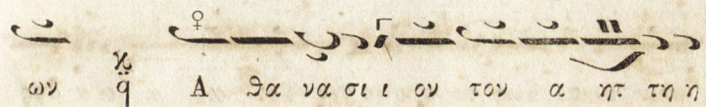 ων ϗ q Α θα να σι ι ον τον α ητ τη η